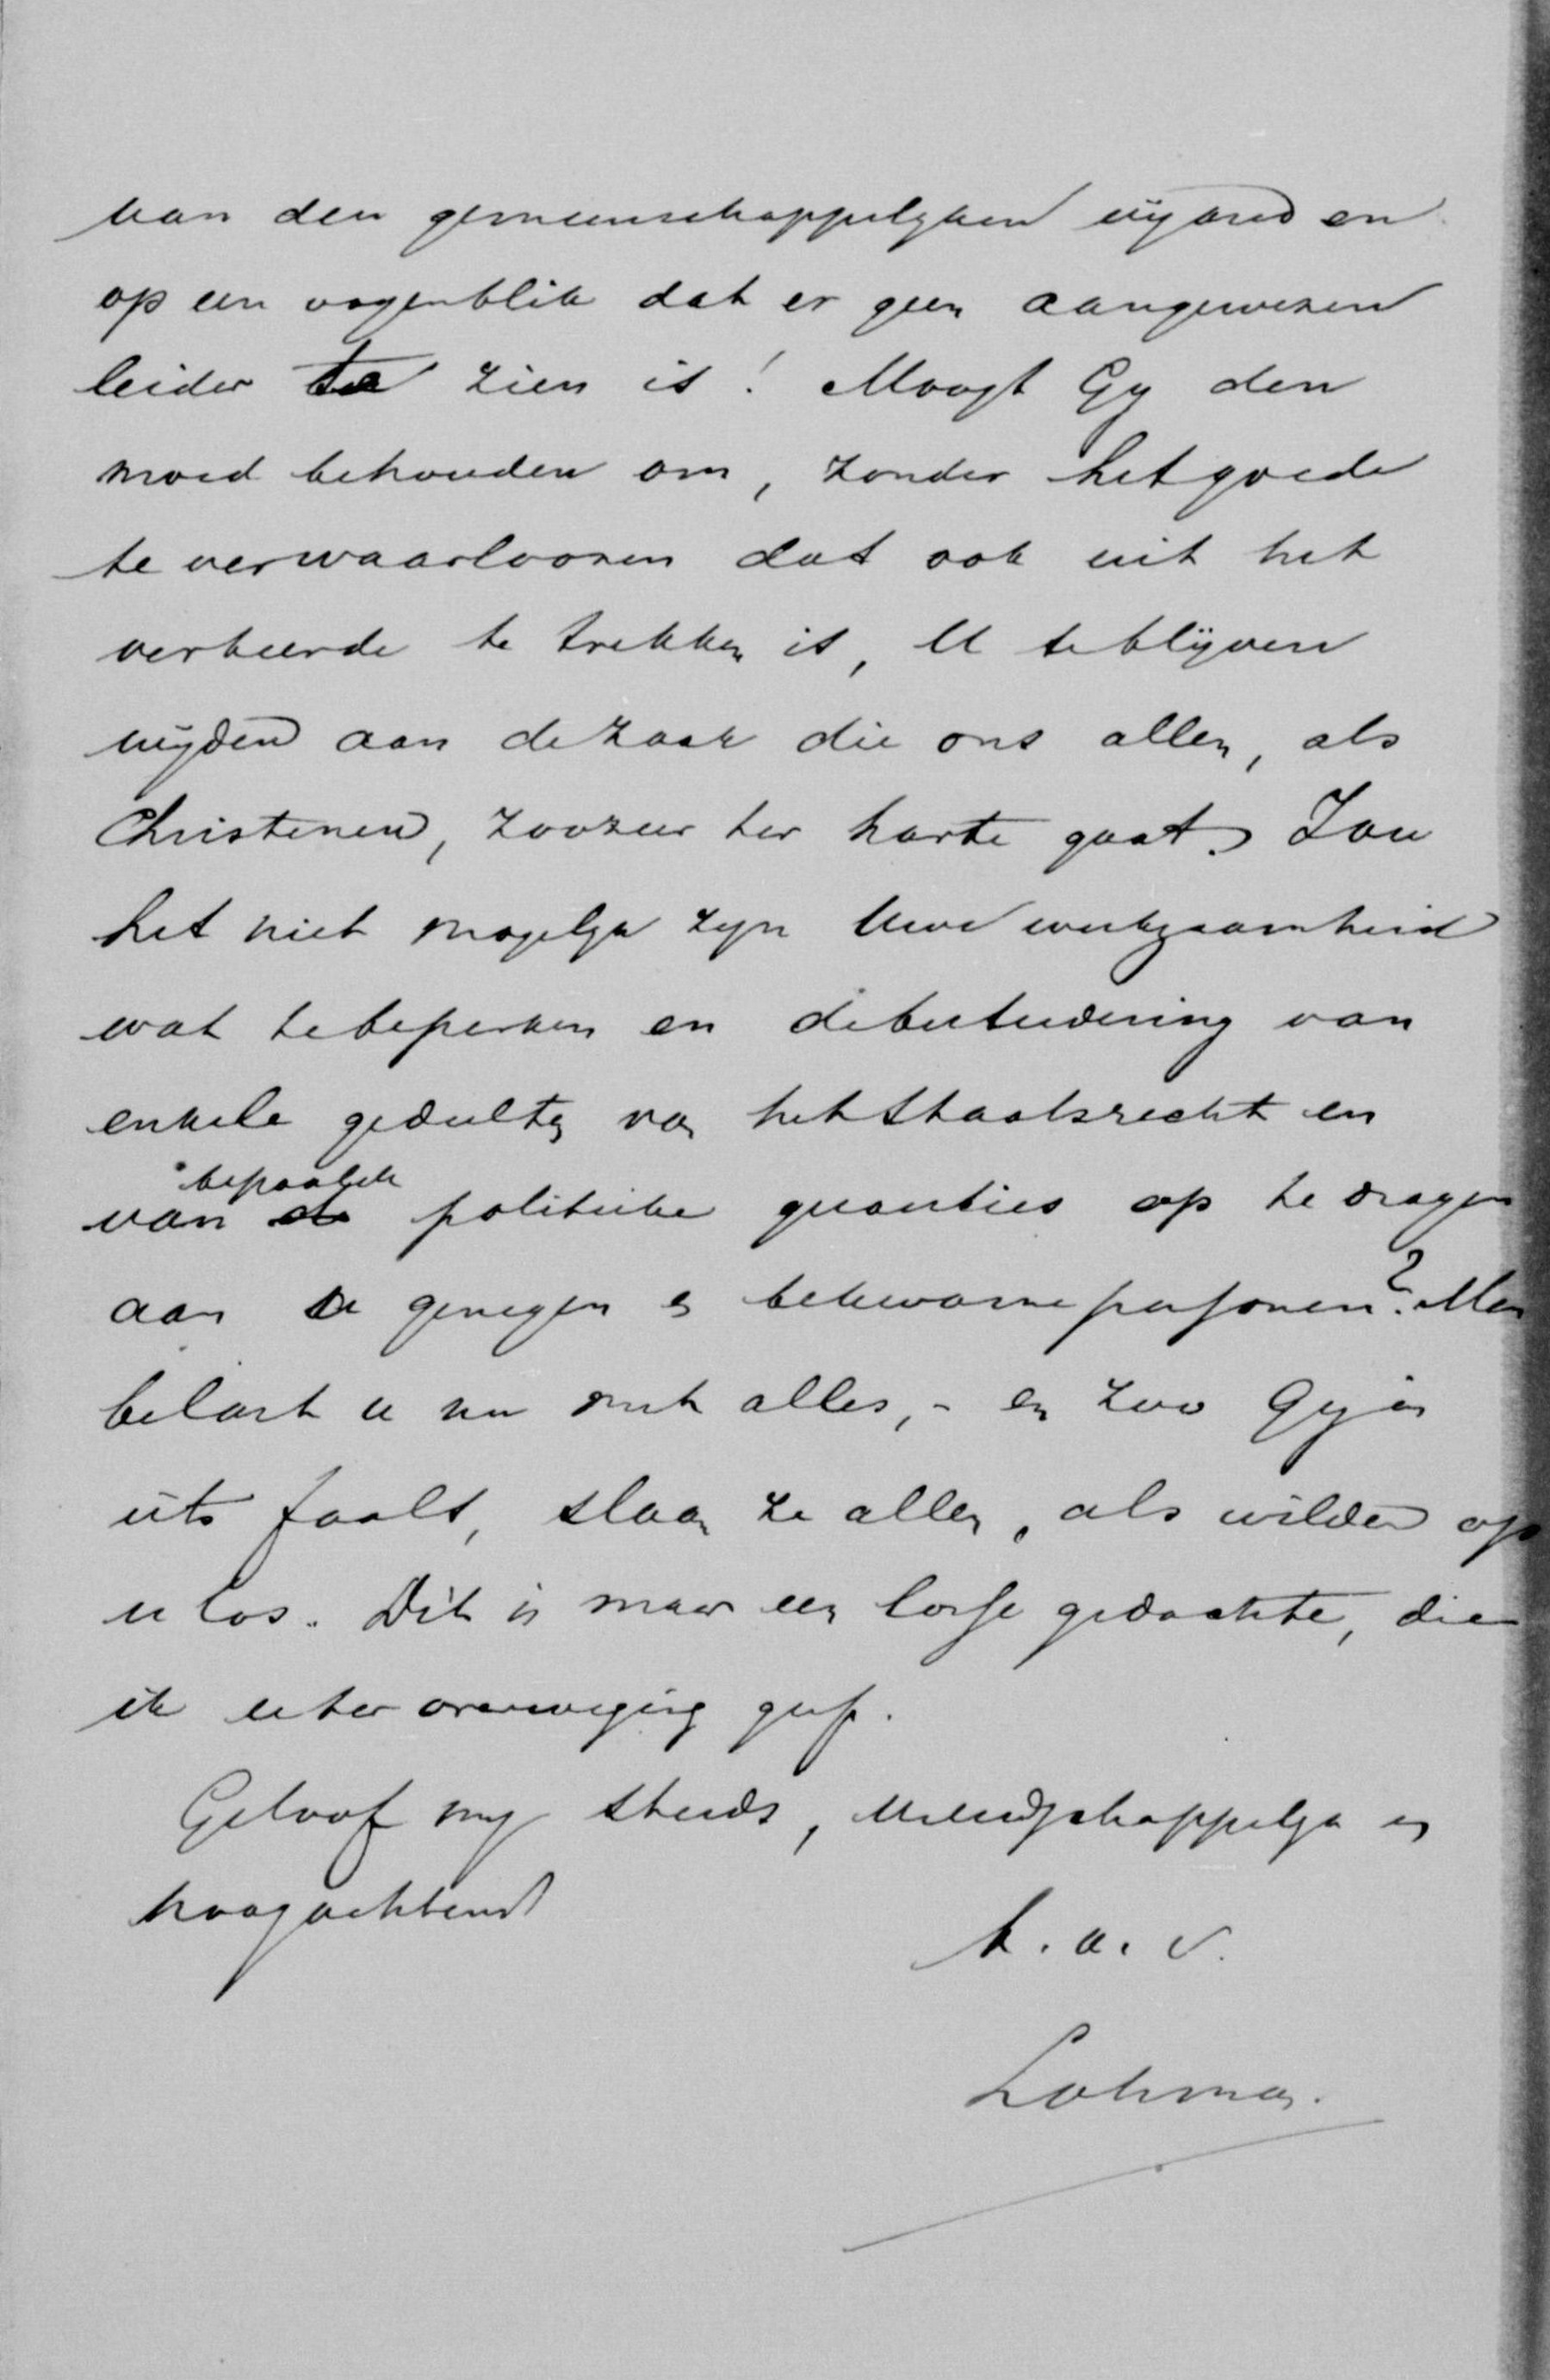 van den gemeenschappelyken vijand en
op een oogenblik dat er geen aangewezen
leider te zien is! Moogt Gy den
moed behouden om, zonder het goede
te verwaarloozen dat ook uit het
verkeerde te trekken is, U te blijven
wijden aan de zaak die ons allen, als
Christenen, zoozeer ter harte gaat. Zou
het niet mogelyk zyn Uwe werkzaamheid
wat te beperken en de bestudering van
enkele gedeelten van het Staatsrecht en
bepaalde
van de politieke quaesties op te dragen
aan de genegen en bekwame personen? Men
belast u nu met alles, - en zoo Gy in
iets faalt, slaan ze allen, als wilden op
u los. Dit is maar een losse gedachte, die
ik u ter overweging geef.
Geloof my steeds, vriendschappelyk en
hoogachtend
t. a. v.
Lohman.